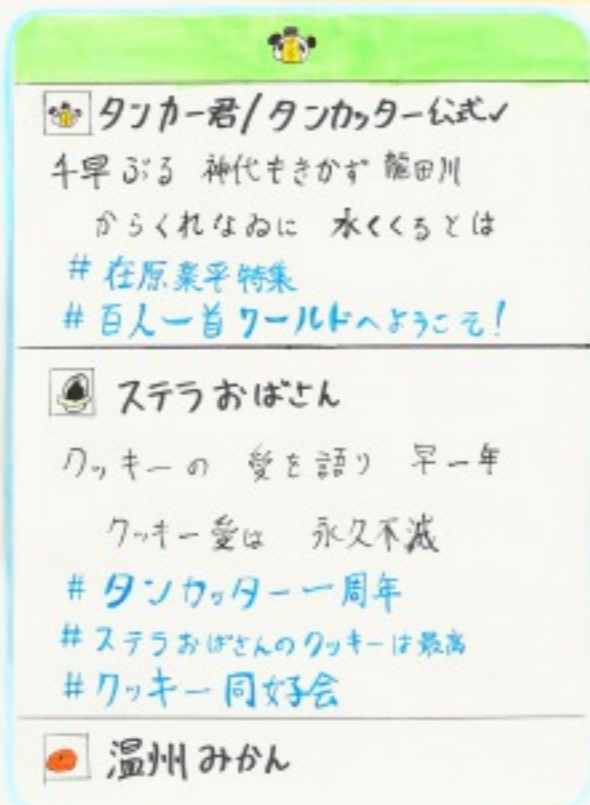 タンカー君/タンカッター公式✓
千早ぶる 神代もきかず 龍田川
からくれなゐに 水くくるとは
# 在原業平特集
# 百人一首ワールドへようこそ!
ステラおばさん
クッキーの 愛を語り 早一年
クッキー愛は 永久不滅
# タンカッター一周年
# ステラおばさんのクッキーは最高
# クッキー同好会
温州みかん